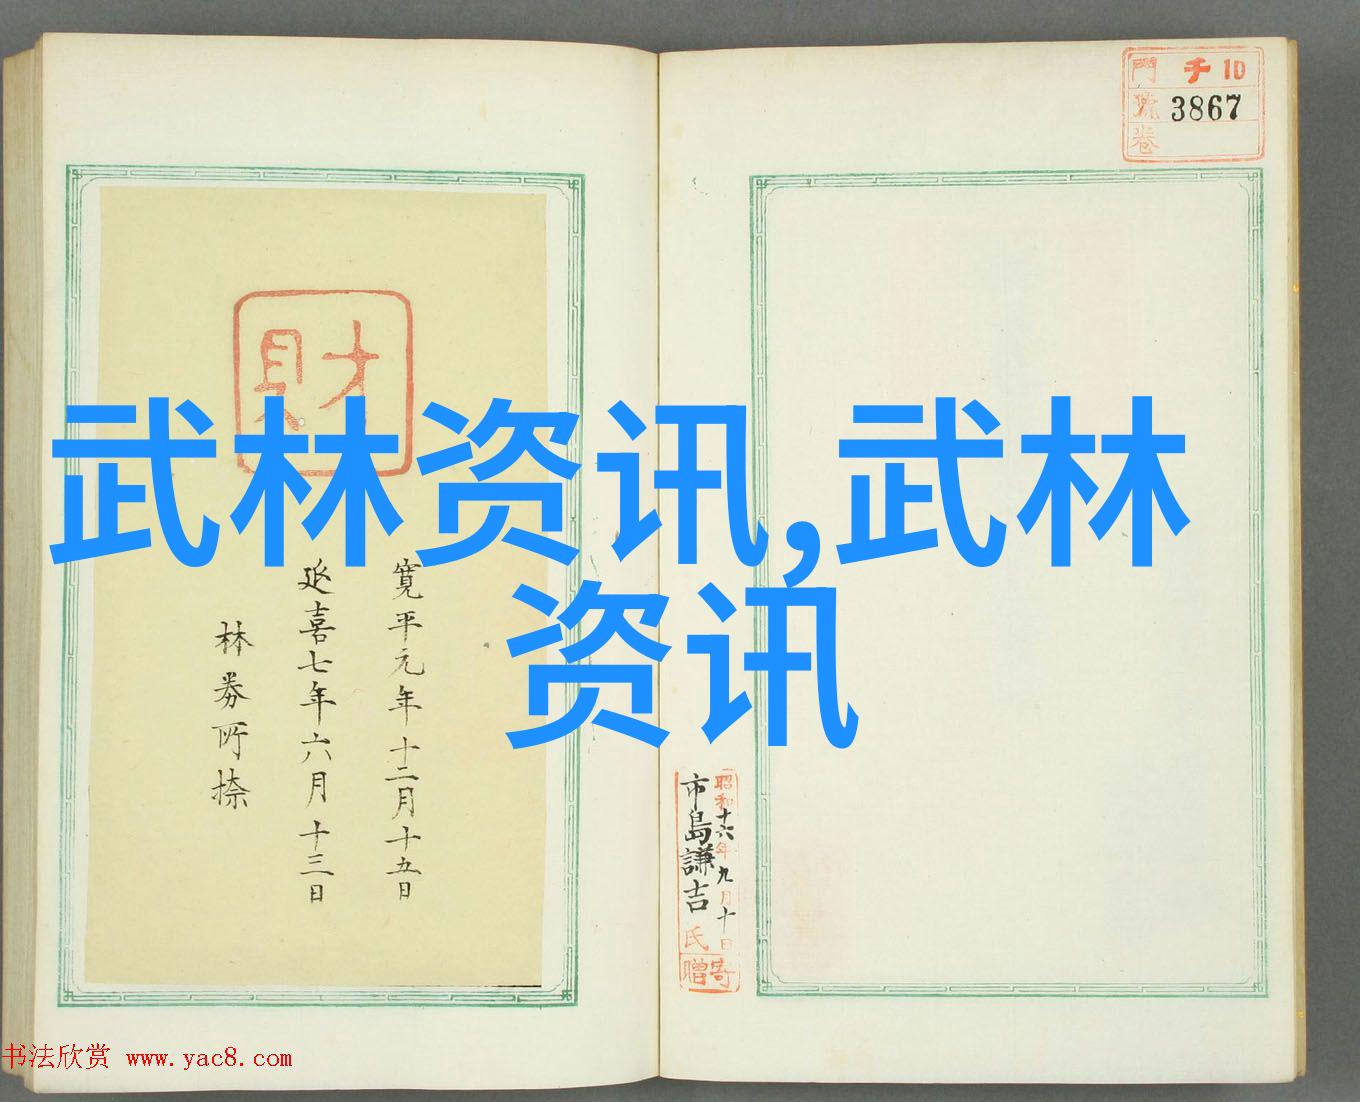 武林资讯,武林
资讯
門 チ 10
號 3867
卷
財
寛平元年十二月十五日
延喜七年六月十三日
林券所捺
昭和十六年九月十日
市島謙吉氏
寄贈
书法欣赏 www.yac8.com